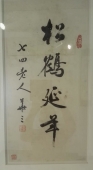 松鶴延年
七四老人